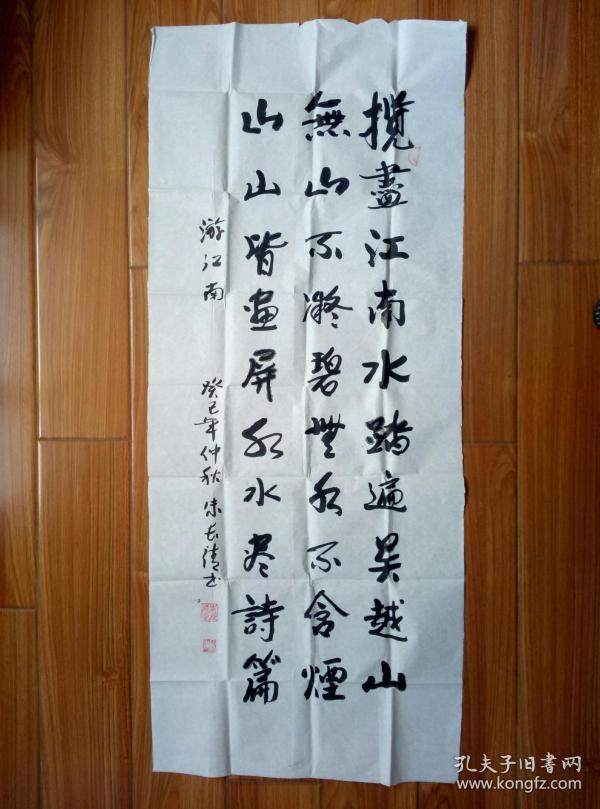 揽盡江南水踏遍吴越山
無山不凝碧無水不含煙
山山皆画屏水水尽詩篇
游江南 癸巳年仲秋 朱长清书
孔夫子旧書网
www.kongfz.com